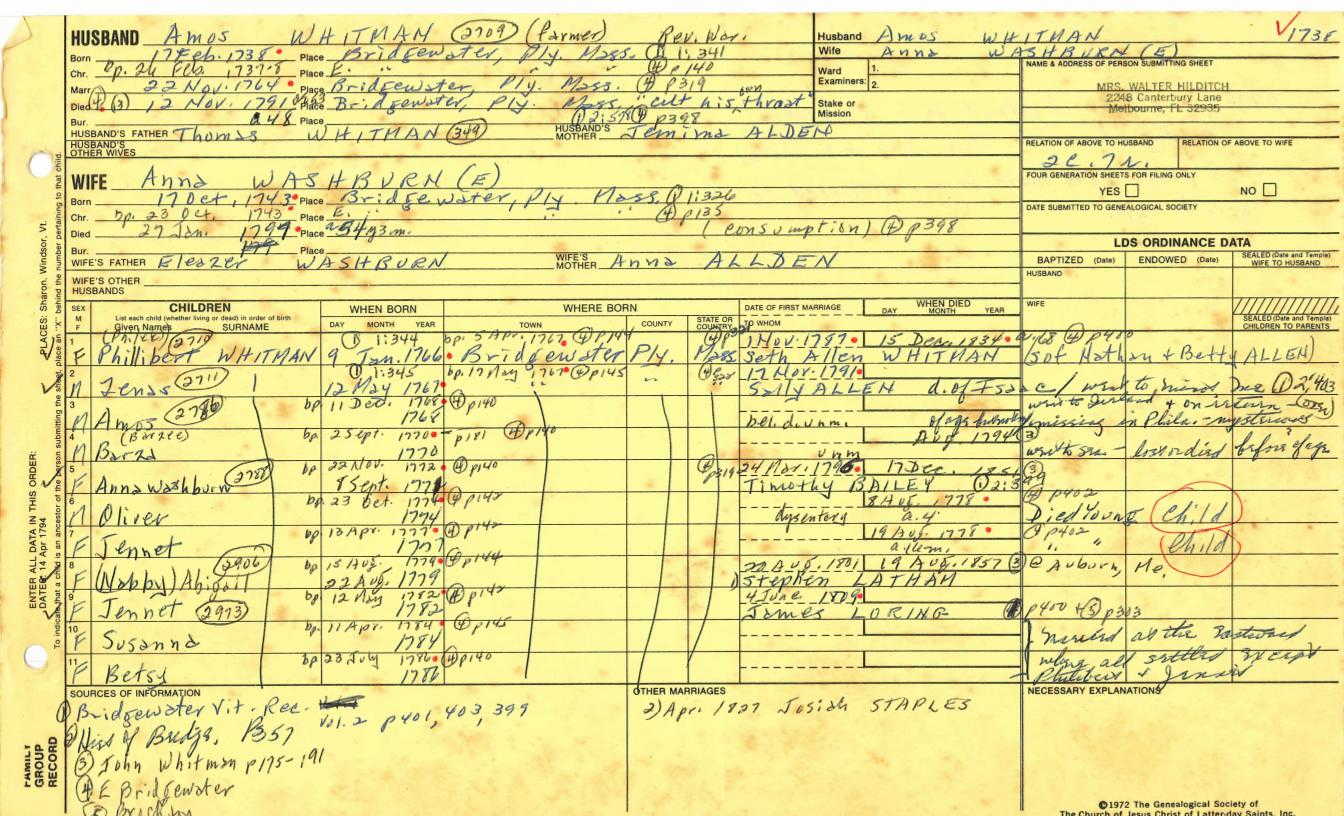 HUSBAND Amos WHITMAN (2709) (Farmer) Rev. War.
Born 17 Feb. 1738 Place Bridgewater, Ply. Mass. (1) 1:341
Chr. bp. 26 Feb. 1737-8 Place E. " " (4) p140
Marr. 22 Nov. 1764 Place Bridgewater, Ply. Mass. (4) p319
Died (4) (3) 12 Nov. 1791 Place Bridgewater, Ply. Mass. "cut his own throat"
Bur. a 48 (1) 2:578 (4) p398
HUSBAND'S FATHER Thomas WHITMAN (349) HUSBAND'S MOTHER Jemima ALDEN
HUSBAND'S OTHER WIVES
WIFE Anna WASHBURN (E)
Born 17 Oct, 1743 Place Bridgewater, Ply Mass. (1) 1:326
Chr. bp. 23 Oct. 1743 Place E. " " (4) p135
Died 27 Jan. 1799 Place a 54y3m. (consumption) (4) p398
Bur. Place
WIFE'S FATHER Eleazer WASHBURN WIFE'S MOTHER Anna ALLDEN
WIFE'S OTHER HUSBANDS
Husband Amos WHITMAN 1738
Wife Anna WASHBURN (E)
Ward Examiners: 1.
2.
Stake or Mission
NAME & ADDRESS OF PERSON SUBMITTING SHEET
MRS. WALTER HILDITCH
2248 Canterbury Lane
Melbourne, FL 32935
RELATION OF ABOVE TO HUSBAND RELATION OF ABOVE TO WIFE
2c.7r.
FOUR GENERATION SHEETS FOR FILING ONLY
YES NO
DATE SUBMITTED TO GENEALOGICAL SOCIETY
LDS ORDINANCE DATA
BAPTIZED (Date) ENDOWED (Date) SEALED (Date and Temple) WIFE TO HUSBAND
HUSBAND
WIFE
SEALED (Date and Temple) CHILDREN TO PARENTS
SEX M F CHILDREN WHEN BORN WHERE BORN DATE OF FIRST MARRIAGE WHEN DIED
List each child (whether living or dead) in order of birth
Given Names SURNAME DAY MONTH YEAR TOWN COUNTY STATE OR COUNTRY TO WHOM DAY MONTH YEAR
1 (2710) (1) 1:344 bp. 5 Apr. 1767 (4) p144 1 Nov. 1787 15 Dec. 1834 (4) p400
F Phillibert WHITMAN 9 Jan. 1766 Bridgewater Ply. Mass Seth Allen WHITMAN (s of Nathan & Betty ALLEN)
2 (2711) (1) 1:345 bp. 17 May 1767 (4) p145 17 Nov. 1791
M Zenas 12 May 1767 " " Sally ALLEN d. of Isaac / (1) 2:403
3 (2786) bp. 11 Dec. 1768 (4) p140
M Amos 1768 missing in Phila. mysterious
4 (Barzee) bp. 2 Sept. 1770 p181 (4) p140 Aug 1794 (3)
M Barza 1770 unm went to sea - lost or died before of age
5 (2788) bp. 22 Nov. 1772 (4) p140 24 Mar. 1796 17 Dec. 1851 (3)
F Anna Washburn 8 Sept. 1771 Timothy BAILEY (1) 2:399
6 bp. 23 Oct. 1774 (4) p142 8 Aug. 1778 (4) p402
M Oliver 1774 dysentery a. 4 Died Young Child
7 bp. 13 Apr. 1777 (4) p142 19 Aug 1778 (4) p402
F Jennet 1777 " " Child
8 (2906) bp. 15 Aug. 1779 (4) p144 22 Aug. 1801 19 Aug. 1857 (3) @ Auburn, Me.
F (Nabby) Abigail 22 Aug. 1779 1) Stephen LATHAM
9 (2973) bp. 12 May 1782 (4) p142 4 June 1809
F Jennet 1782 James LORING p400 + (3) p303
10 bp. 11 Apr. 1784 (4) p145
F Susanna 1784 married at the Eastward
11 bp. 23 July 1786 (4) p140 where all settled except
F Betsy 1786 Philibert & Jennet
SOURCES OF INFORMATION
(1) Bridgewater Vit. Rec. Vol. 2 p401, 403, 399
(2) Hist of Bridge, P357
(3) John Whitman p175-191
(4) E Bridgewater
OTHER MARRIAGES
2) Apr. 1827 Josiah STAPLES
NECESSARY EXPLANATIONS
©1972 The Genealogical Society of
The Church of Jesus Christ of Latter-day Saints, Inc.
ENTER ALL DATA IN THIS ORDER:
DATES: 14 Apr 1794 PLACES: Sharon, Windsor, Vt.
To indicate that a child is an ancestor of the person submitting the sheet, place an "X" behind the number pertaining to that child.
FAMILY GROUP RECORD